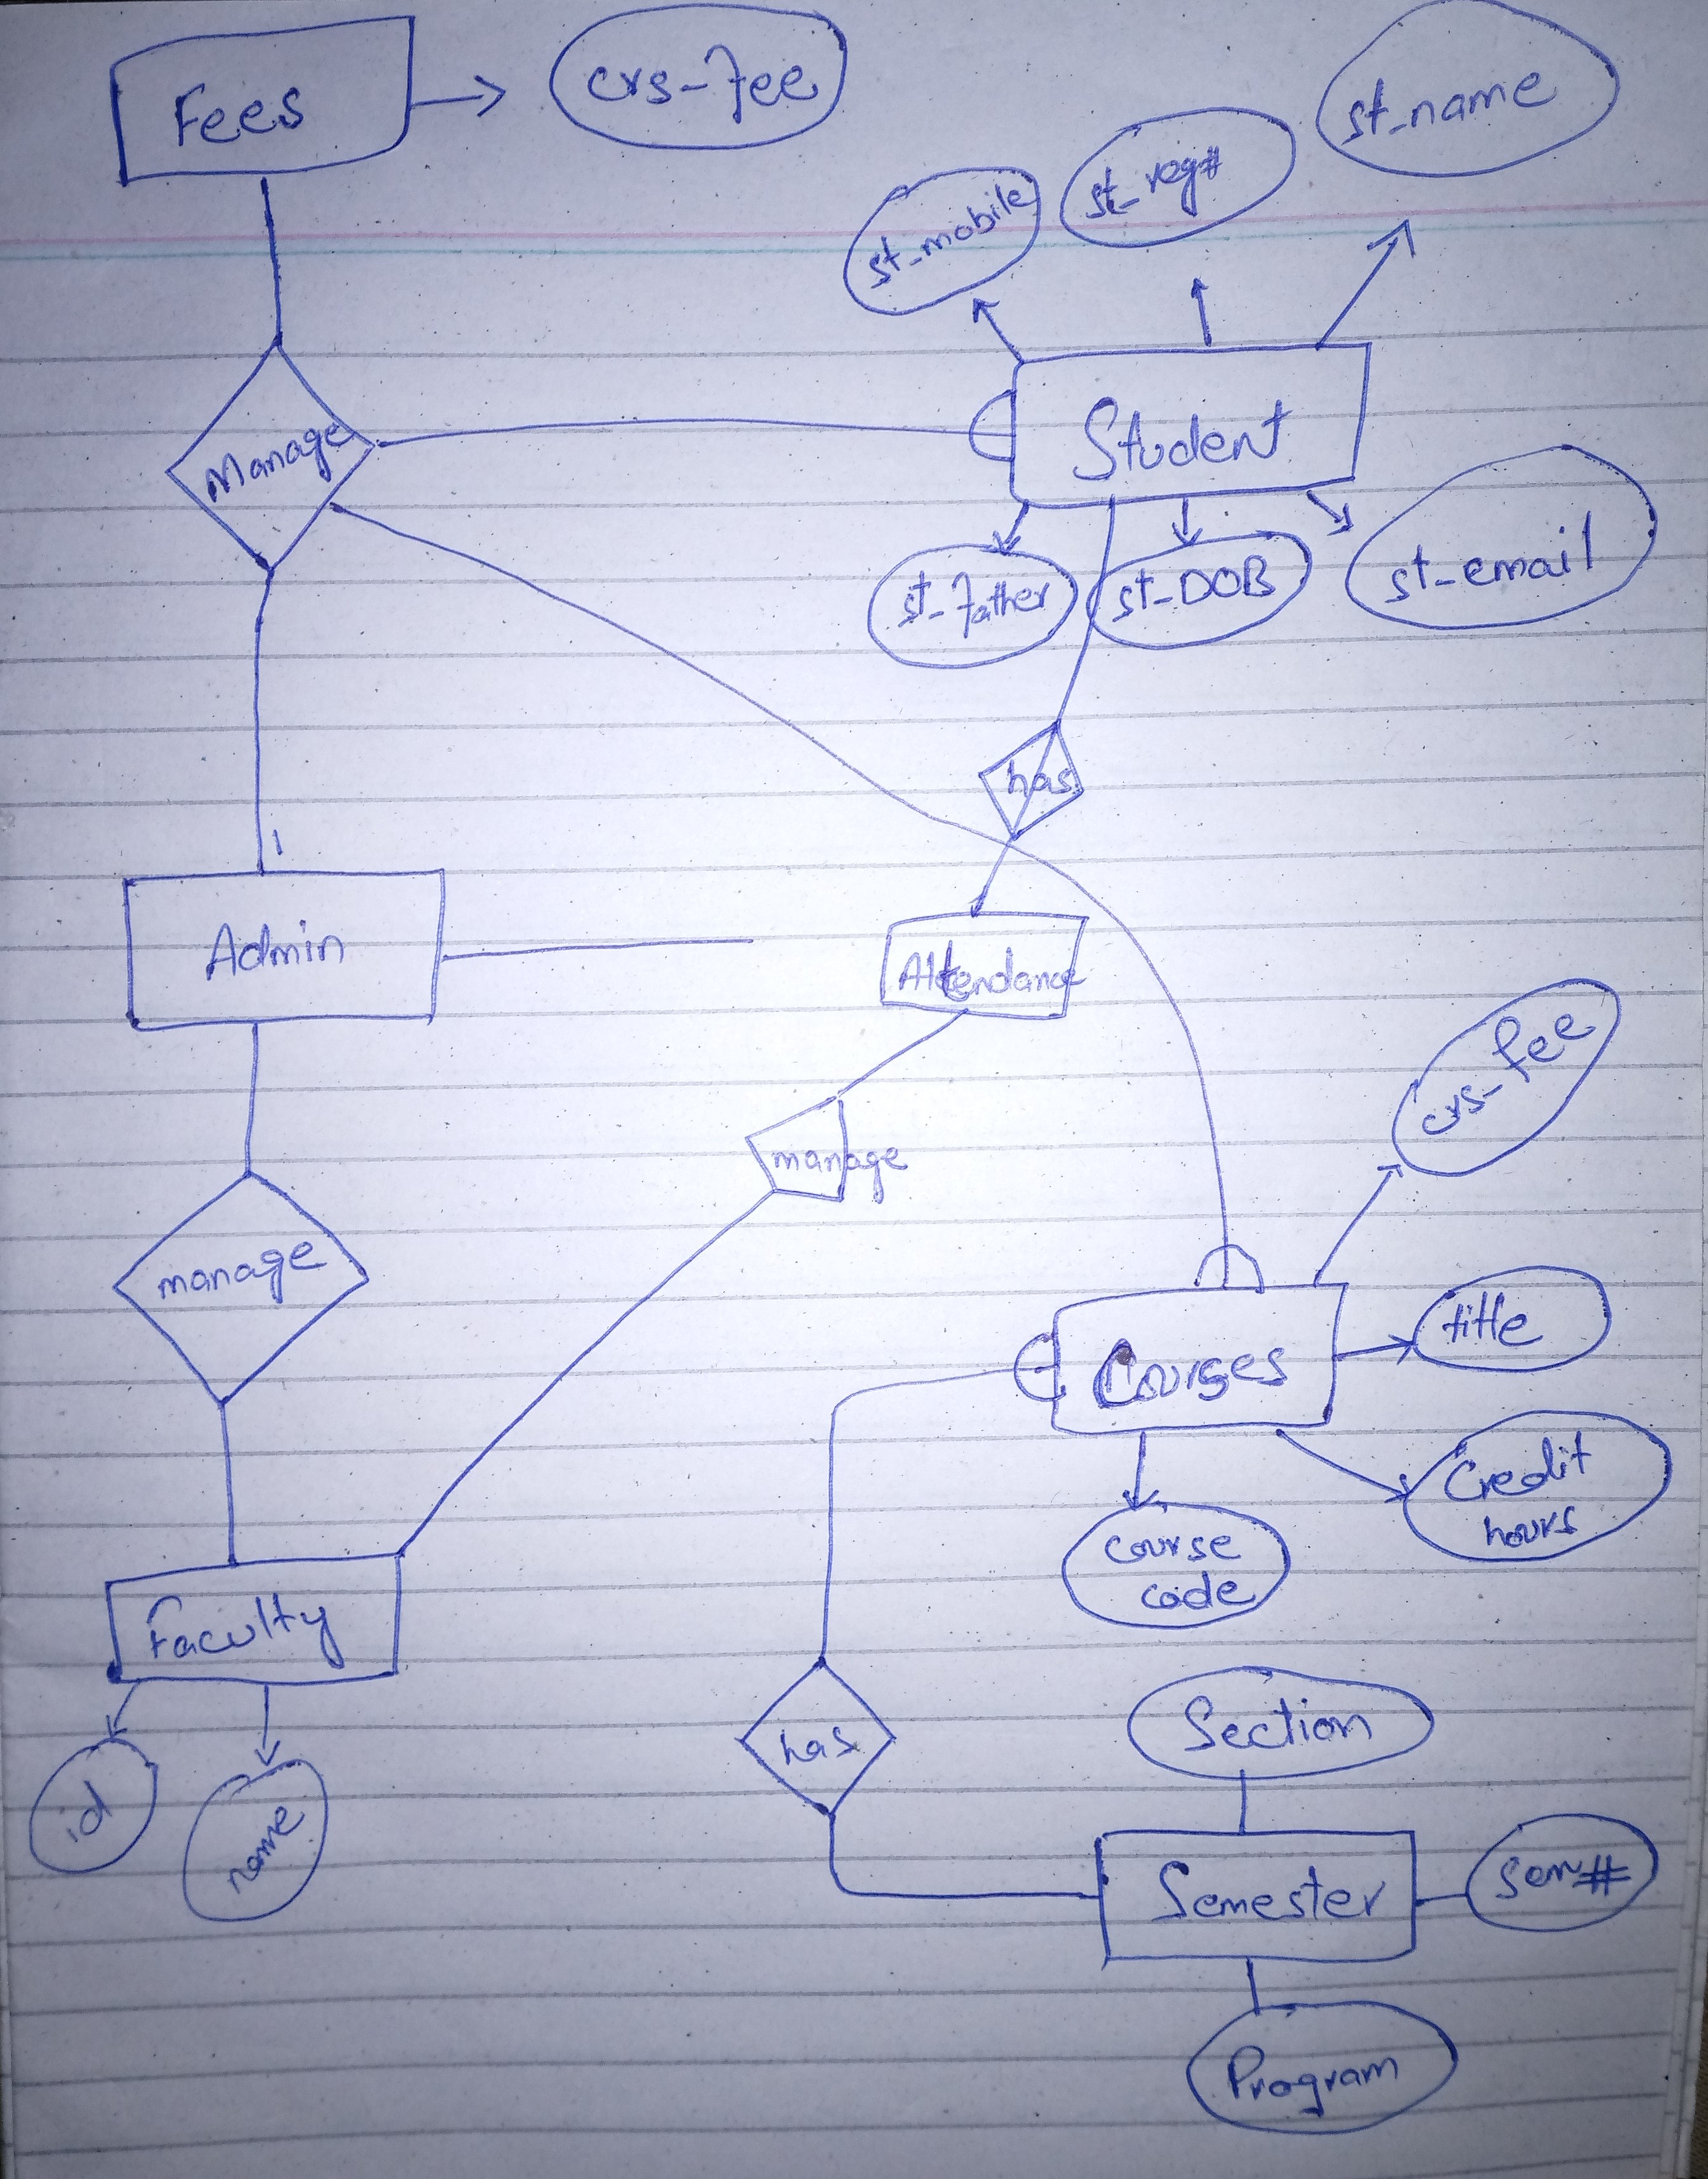 Fees
crs-fee
st-name
st-reg#
st-mobile
Manage
Student
st-father
st-DOB
st-email
has
1
Admin
Attendance
crs-fee
manage
manage
title
Courses
Credit
hours
course
code
Faculty
Section
has
id
name
Semester
Sem#
Program